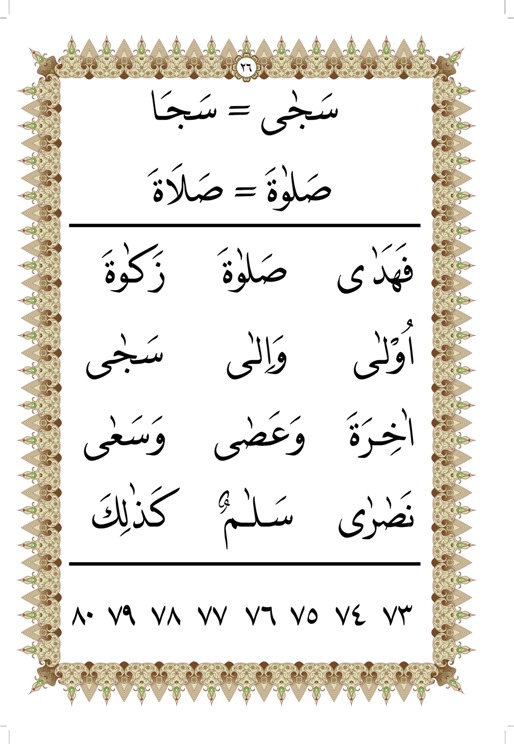 ٢٦
سَجٰى = سَجَا
صَلٰوةَ = صَلَاةَ
فَهَدٰى صَلٰوةَ زَكٰوةَ
اُوْلٰى وَاِلٰى سَجٰى
اٰخِرَةَ وَعَصٰى وَسَعٰى
نَصٰرٰى سَلٰمٌ كَذٰلِكَ
٧٣ ٧٤ ٧٥ ٧٦ ٧٧ ٧٨ ٧٩ ٨٠